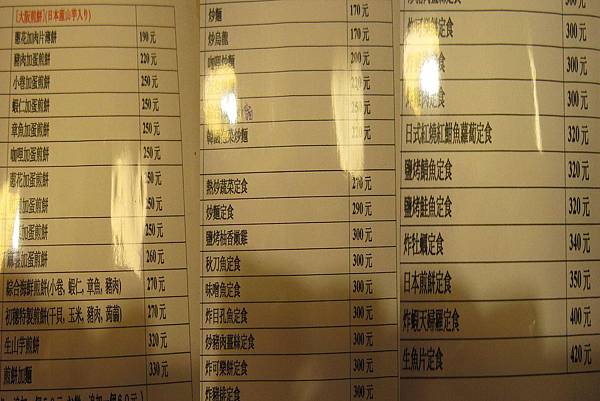 [大阪煎餅](日本 山芋入り)
蔥花加肉片薄餅 190元
豬肉加蛋煎餅 220元
小卷加蛋煎餅 250元
蝦仁加蛋煎餅 250元
章魚加蛋煎餅 250元
咖哩加蛋煎餅 250元
蔥花加蛋煎餅 250元
加蛋煎餅 250元
加蛋煎餅 250元
加蛋煎餅 260元
綜合海鮮煎餅(小卷, 蝦仁, 章魚, 豬肉) 270元
特製煎餅(干貝, 玉米, 豬肉, 蒟蒻) 270元
生山芋煎餅 320元
煎餅加麵 330元
炒麵 170元
炒烏龍 170元
咖哩炒麵 200元
220元
250元
韓國泡菜炒麵 220元
熱炒蔬菜定食 270元
炒麵定食 290元
鹽烤柚香嫩雞 300元
秋刀魚定食 300元
味噌魚定食 300元
炸白孔魚定食 300元
炒豬肉薑絲定食 300元
炸可樂餅定食 300元
炸豬排定食 300元
定食 300元
定食 300元
定食 300元
定食 300元
日式紅燒紅魽魚蘿蔔定食 320元
鹽烤鯖魚定食 320元
鹽烤鮭魚定食 320元
炸牡蠣定食 340元
日本煎餅定食 350元
炸蝦天婦羅定食 400元
生魚片定食 420元